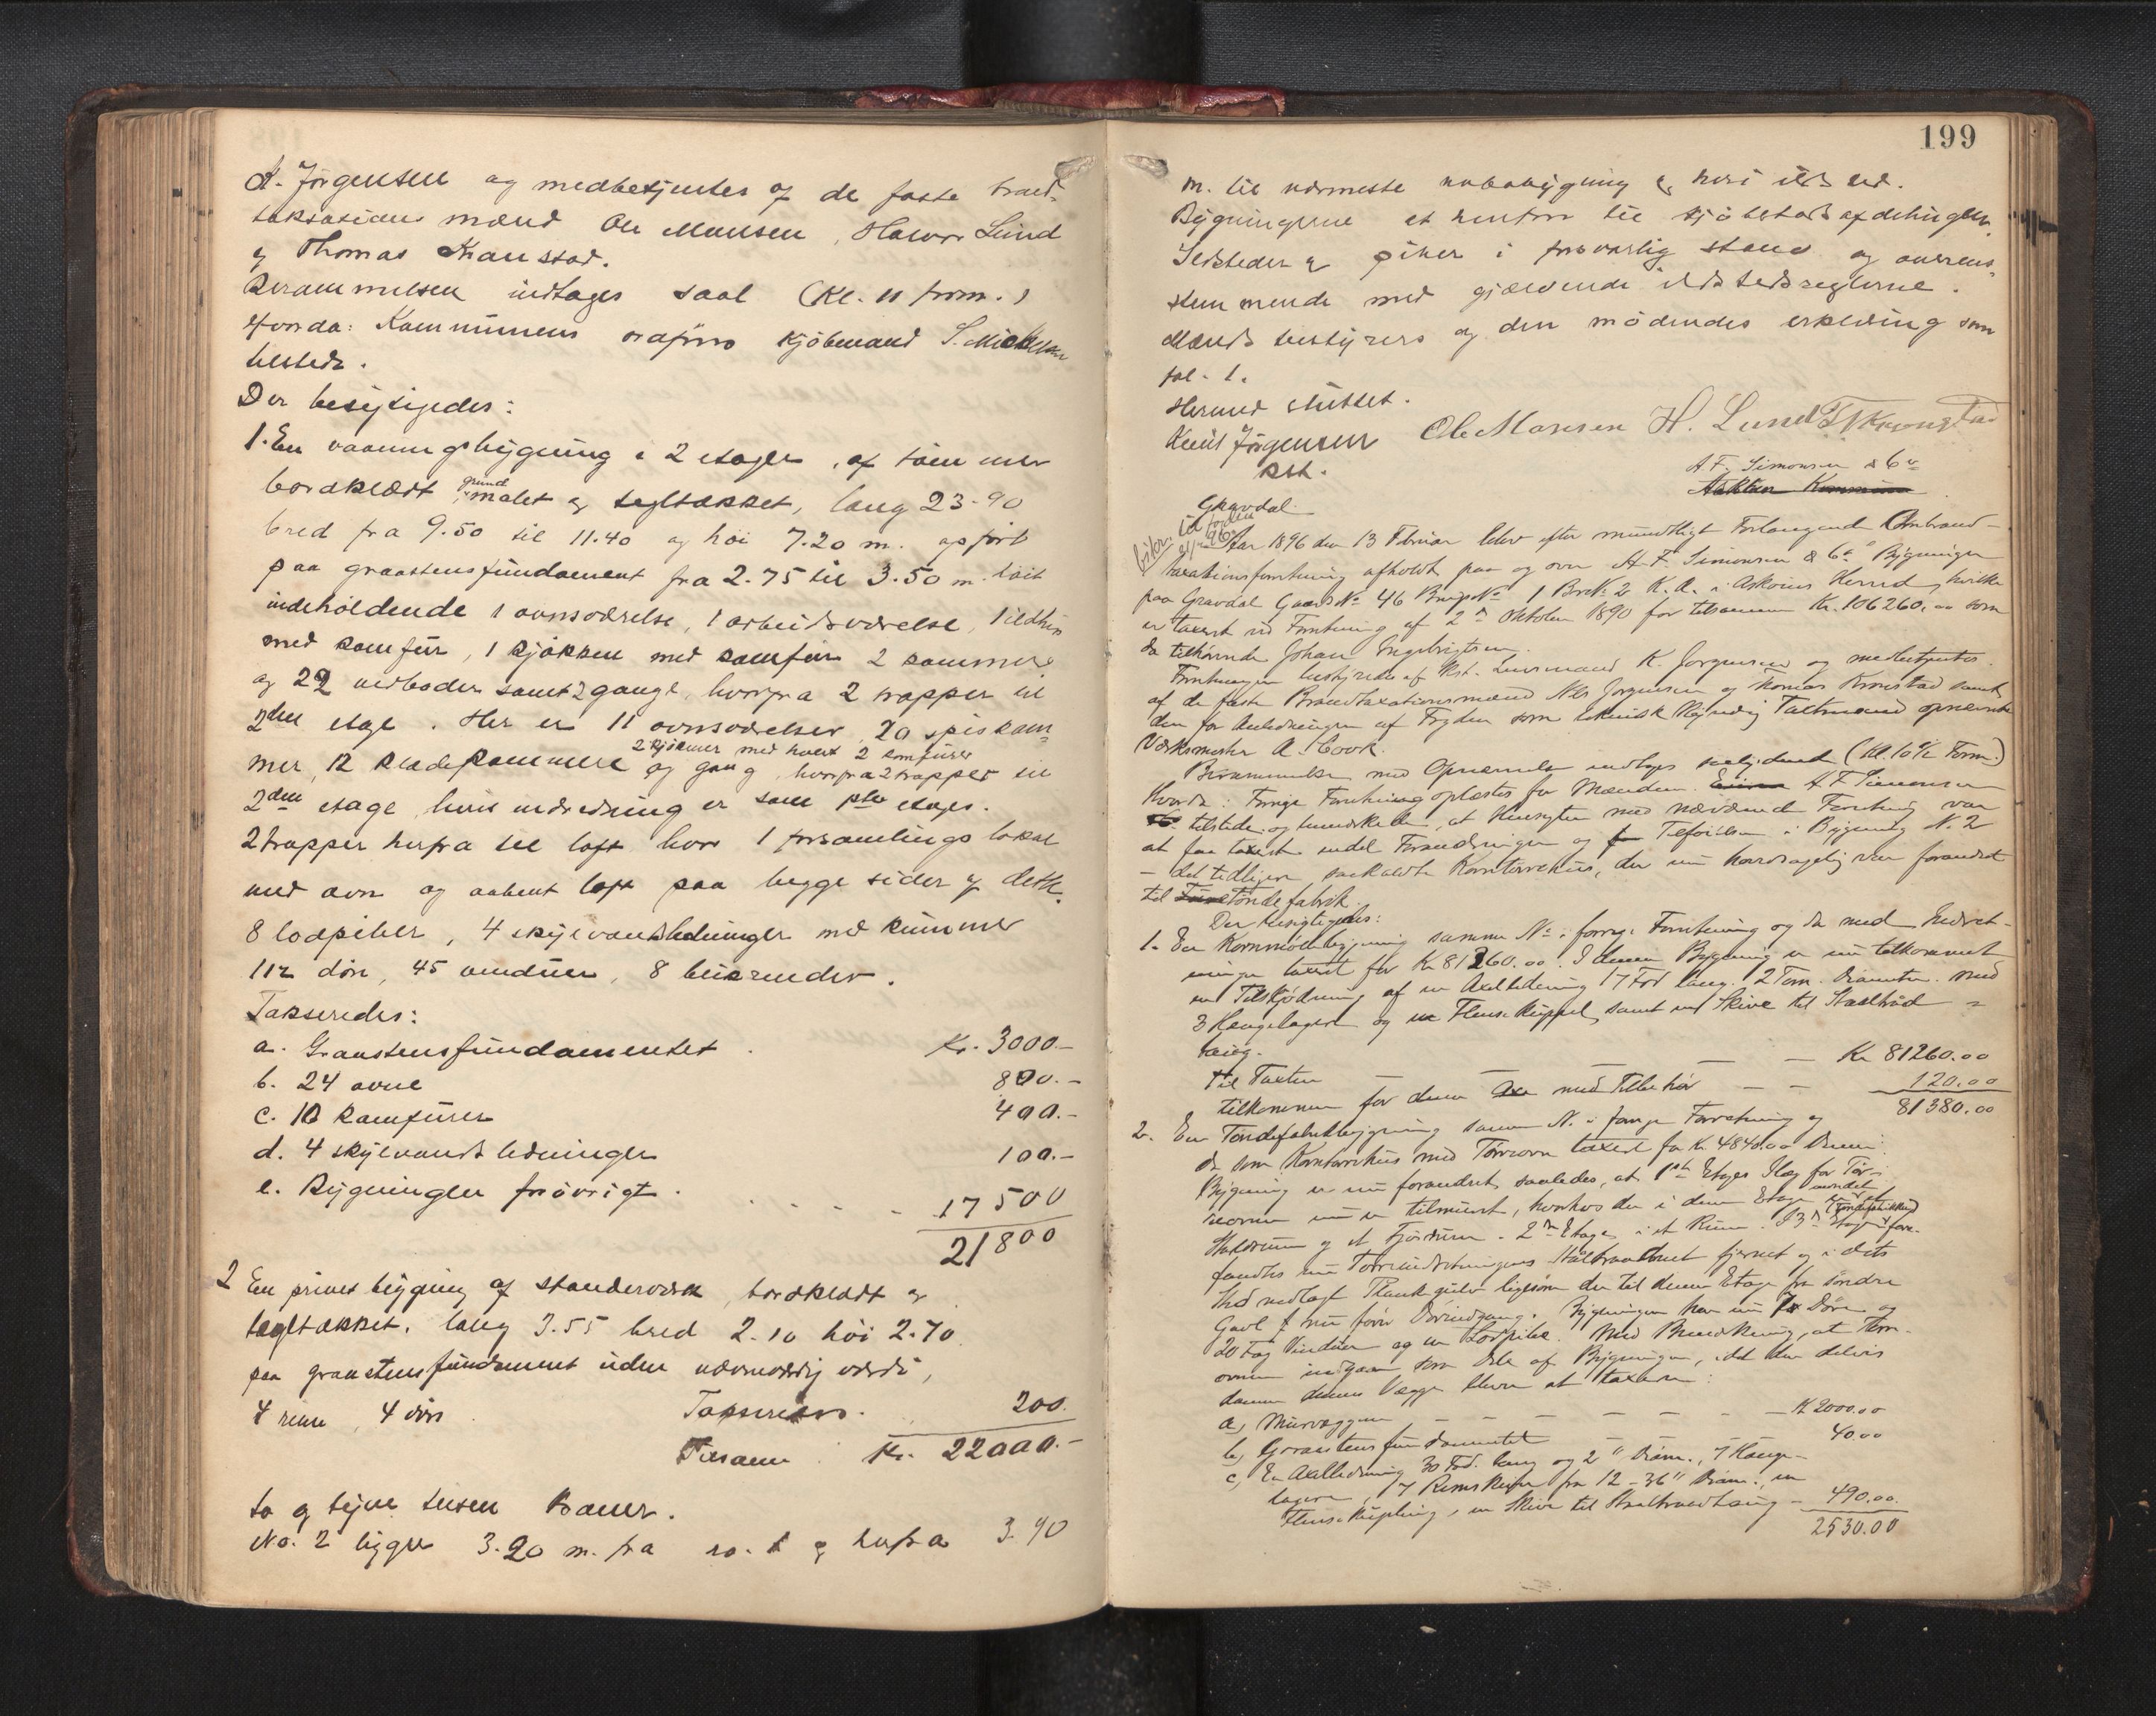 K. Jörgensen og medbetjentes af de faste brand-
taksations mænd Ole Monsen, Halvor Lund
og Thomas Kronstad.
Berammelsen indtages saal (Kl. 11 form.)
Hvorda: Kommunens ordfører kjöbmand S. Mickelsen
tilstede.
Der besigtigedes:
1. En vaaningsbygning i 2 etager, af tömmer
bordklædt grund malet og tegltækket, lang 23-90
bred fra 9.50 til 11.40 og höi 7.20 m. opfört
paa graastensfundament fra 2.75 til 3.50 m. höit
indeholdende 1 ovnsværelse, 1 arbeidsværelse, 1 ildhus
med komfür, 1 kjökken med komfür 2 kammere
og 22 vedboder samt 2 gange, hvorfra 2 trapper til
2den etage. Her er 11 ovnsværelser, 20 spiskam-
2 kjökner med hvert 2 komfürer
mer, 12 klædekammere og gang, hvorfra 2 trapper til
2den etage, hvis indredning er som 1ste etages.
2 trapper herfra til loft hvor 1 forsamlings lokal
med ovn og aabent loft paa begge sider af dette.
8 lodpiber, 4 skyllevandsledninger med kummer
112 döre, 45 vinduer, 8 beisrender.
Takseredes:
a. Graastensfundamentet Kr. 3000.-
b. 24 ovne 800.-
c. 10 komfürer 400.-
d. 4 skyllevands ledninger 100.-
e. Bygningen forövrigt 17500
21800
2 En privet bygning af standerværk, bordklædt og
tegltækket, lang 3.55 bred 2.10 höi 2.70
paa graastensfundament uden nævneværdig værdi,
4 rum, 4 döre Takseredes 200.
Tilsamm. Kr. 22000.-
to og tyve tusen Kroner.
No. 2 ligger 3.20 m. fra no. 1 og herfra 3.90
199
m. til nærmeste nabobygning og heri ildsted.
Bygningerne er henført til kjöbstadsafdelingen.
Ildsteder og piber i forsvarlig stand og overens-
stemmende med gjældende ildstedsreglerne.
Mænds bestyrers og den mödendes erklæring som
fol. 1.
Hermed sluttet.
Knut Jörgensen Ole Monsen H. Lund T. Kronstad
Kst.
A. F. Simonsen & Co
Askøen Kommune
Gravdal
Aar 1896 den 13 Februar blev efter mundtligt Forlangende Ombrand-
taxationsforretning afholdt paa og over A. F. Simonsen & Co Bygninger
paa Gravdal Gaards No 46 Brugs No 1 Br. No 2 K. A. i Askøens Herred, hvilke
er taxeret ved Forretning af 2den Oktober 1890 for tilsammen Kr. 106260,00 som
da tilhørende Johan Engebrigtsen.
Forretningen bestyredes af Kst. Lensmand K. Jørgensen og medbetjentes
af de faste Brandtaxationsmænd Nils Jørgensen og Thomas Kronstad samt
den for Anledningen af Fogden som teknisk kyndig Taltmand opnævnte
Værksmester A. Cook.
Berammelse med Opnævnelse indtages saalydende (Kl. 10½ Form.)
Hvorda: Forrige Forretning oplæstes for Mændene. A F Simonsen
tilstede og bemærkede, at Hensigten med nærværende Forretning var
at faa taxeret endel Forandringer og Tilføielser i Bygning No. 2
- det tidligere saakaldte Korntørrehus, der nu hovedsagelig var forandret
til Tøndefabrik.
Der besigtigedes:
1. En Kornmøllebygning samme No i forrige Forretning og da med Indret-
ninger taxeret for Kr 81260.00. I denne Bygning er nu tilkommet
en Tilskjødning af en Axelledning 17 Fod lang. 2 Tom. Diameter. med
3 Hængelagere og Flense Kuppel, samt en Skive til Staaltraad-
taug.
Til Taxten Kr 81260.00
tilkommer for denne Axe med Tilbehør 120.00
81380.00
2. En Tøndefabrikbygning samme No. i forrige Forretning og
da som Korntørrehus med Tørreovn taxeret for Kr. 4840.00. Denne
Bygning er nu forandret saaledes, at 1ste Etages Ilæg for Tør-
reovnen nu er tilmuret, hvorhos der i denne Etage er indredet
Staldrum og et Fjösrum. 2den Etage i et Rum (Tøndefabrikken). I 3die Etage er
fandtes nu Tørreindretningens Staltraadbund fjernet og i dets
Sted nedlagt Plankegulv ligesom der til denne Etage fra søndre
Gavl nu fører Dørindgang. Bygningen har nu 7 Døre og
20 Fag Vinduer og en Lodpibe. Med Bemærkning, at Tørre-
ovnen indgaar som Dele af Bygningen, idet den delvis
danner dennes Vægge bliver at taxere:
a, Murvæggene Kr 2000.00
b, Graastensfundamentet 40.00
c, En Axelledning 30 Fod. lang og 2" Diam., 7 Hænge-
lagere, 7 Remskiver fra 12-36" Diam., en
Flense Kupling, en Skive til Staaltraadtaug 490.00.
2530.00